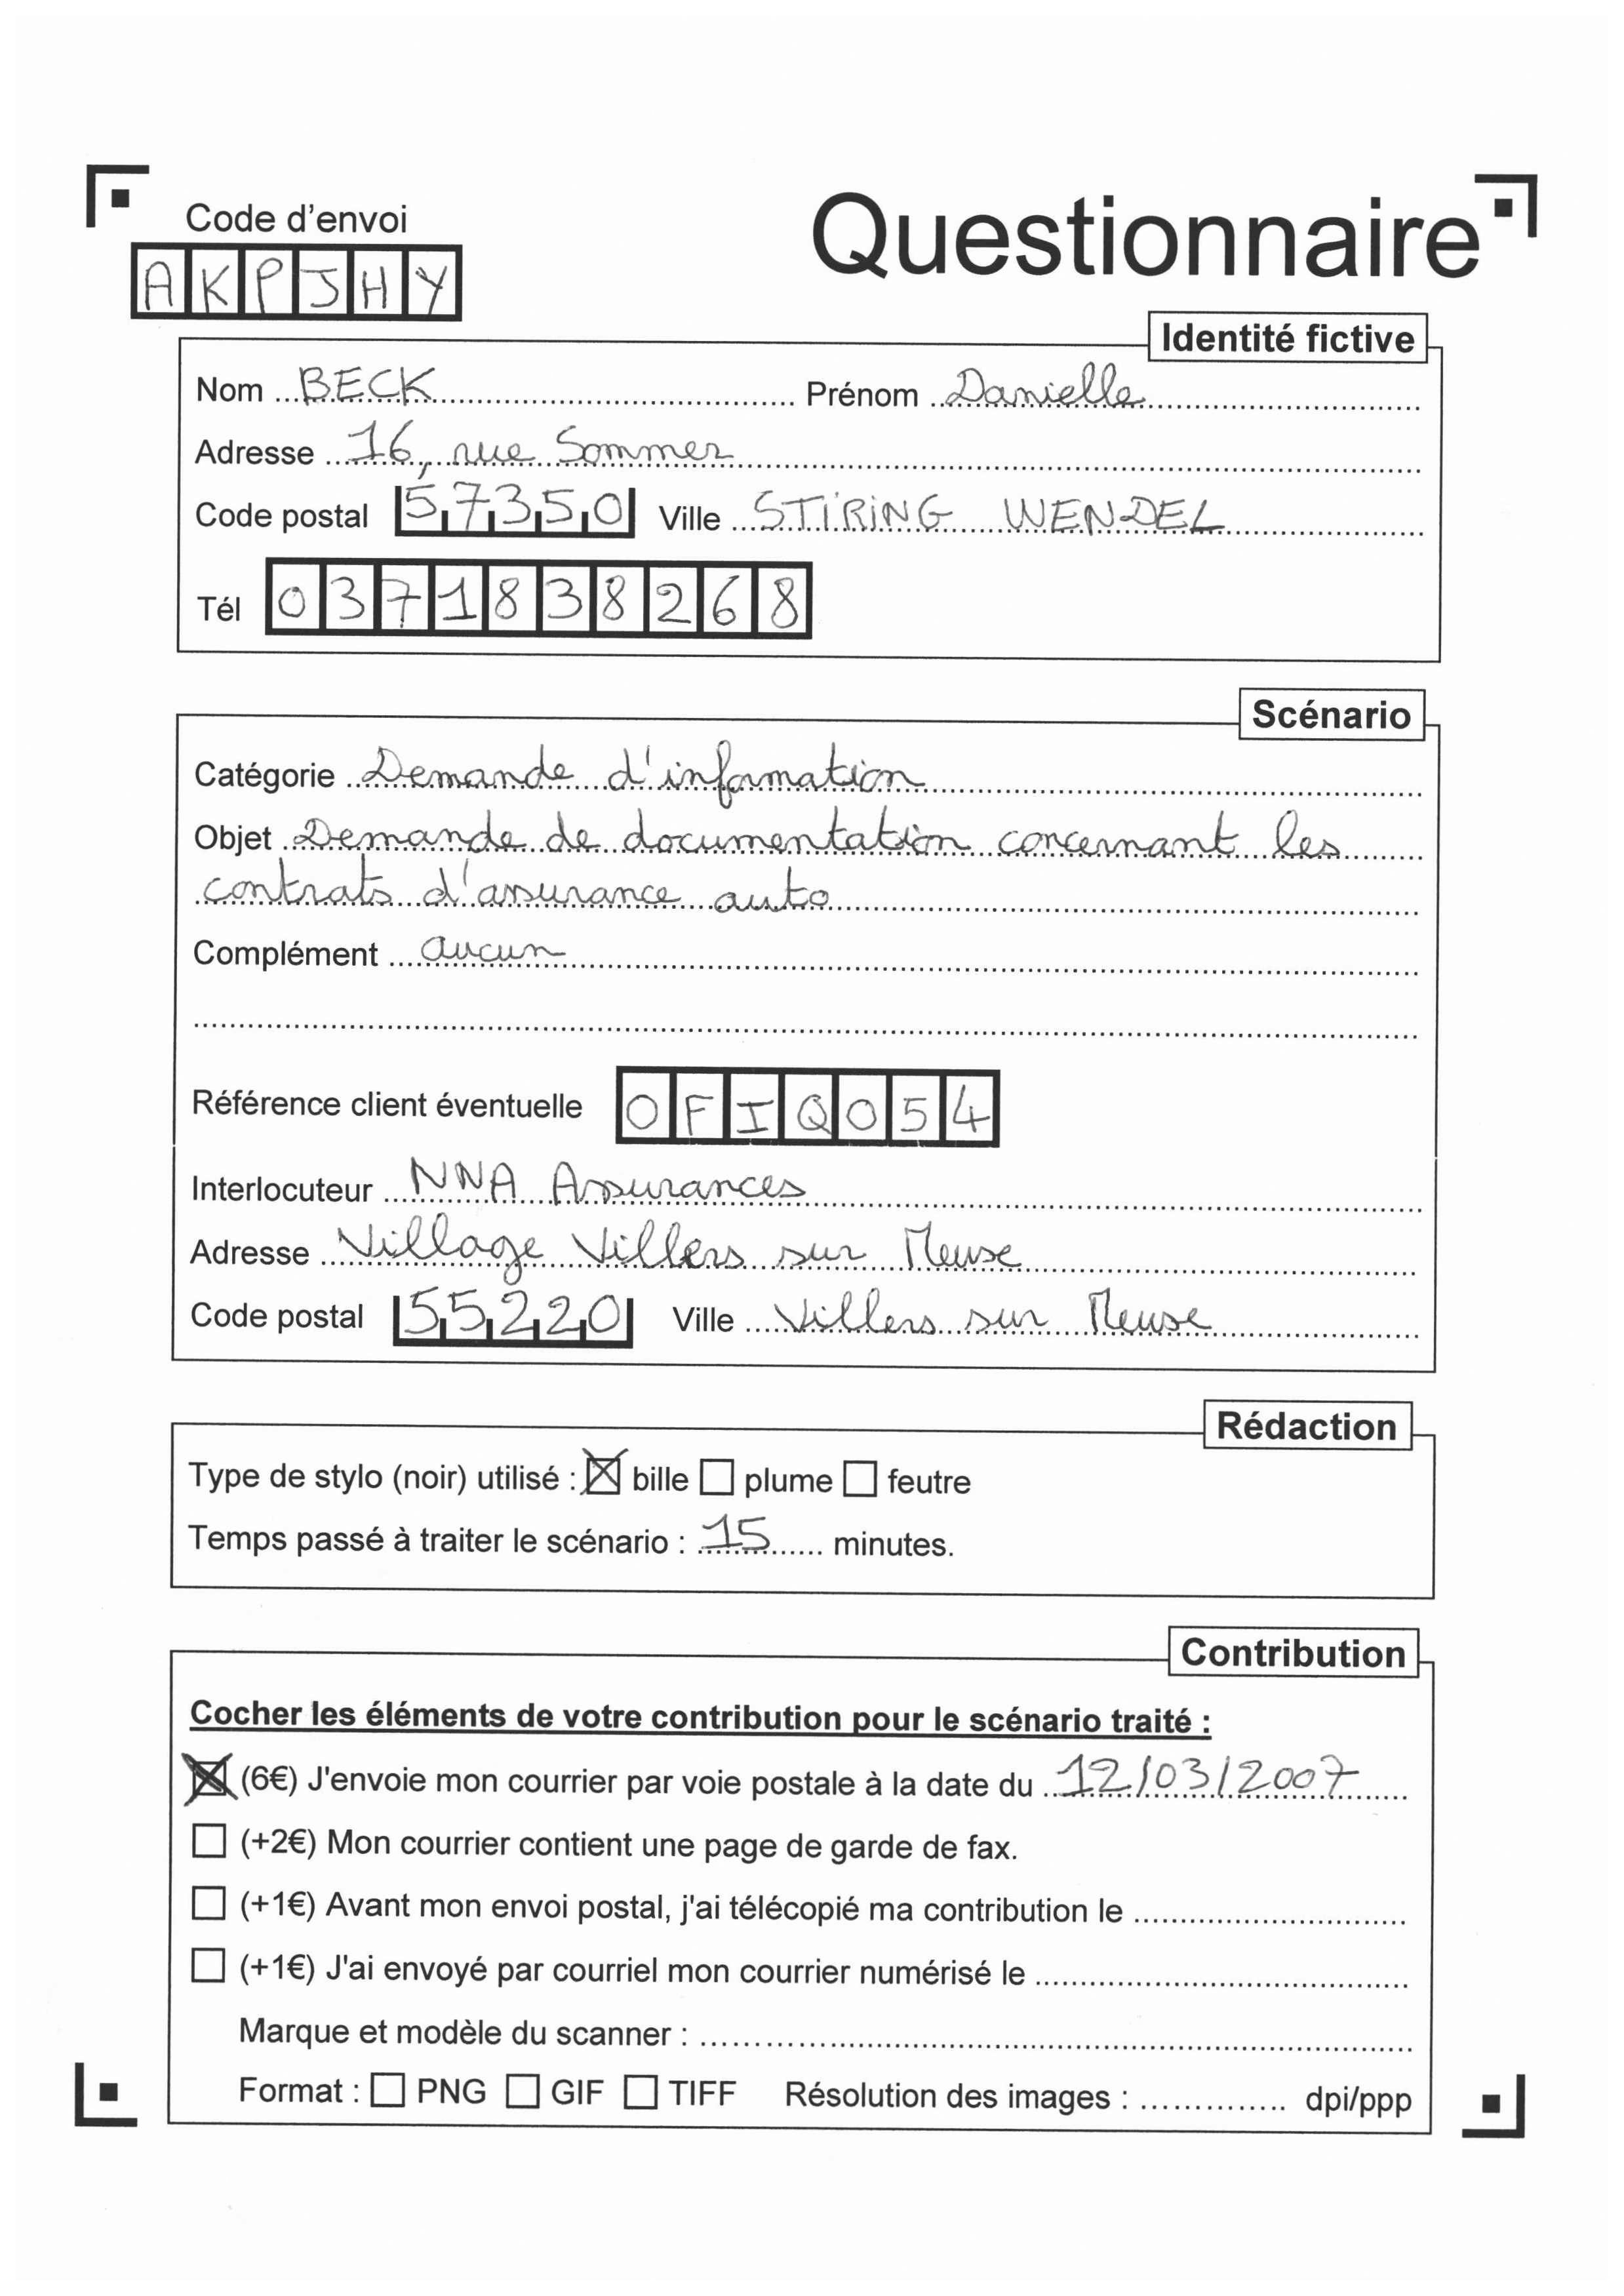 Code d'envoi
Questionnaire
AKPJHY
Identité fictive
Nom BECK Prénom Danielle
Adresse 16, rue Sommer
Code postal 57350 Ville STIRING WENDEL
Tél 0371838268
Scénario
Catégorie Demande d'information
Objet Demande de documentation concernant les
contrats d'assurance auto
Complément aucun
Référence client éventuelle OFIQ054
Interlocuteur NNA Assurances
Adresse Village Villers sur Meuse
Code postal 55220 Ville Villers sur Meuse
Rédaction
Type de stylo (noir) utilisé : ☒ bille ☐ plume ☐ feutre
Temps passé à traiter le scénario : 15 minutes.
Contribution
Cocher les éléments de votre contribution pour le scénario traité :
☒ (6€) J'envoie mon courrier par voie postale à la date du 12/03/2007
☐ (+2€) Mon courrier contient une page de garde de fax.
☐ (+1€) Avant mon envoi postal, j'ai télécopié ma contribution le
☐ (+1€) J'ai envoyé par courriel mon courrier numérisé le
Marque et modèle du scanner :
Format : ☐ PNG ☐ GIF ☐ TIFF Résolution des images : dpi/ppp